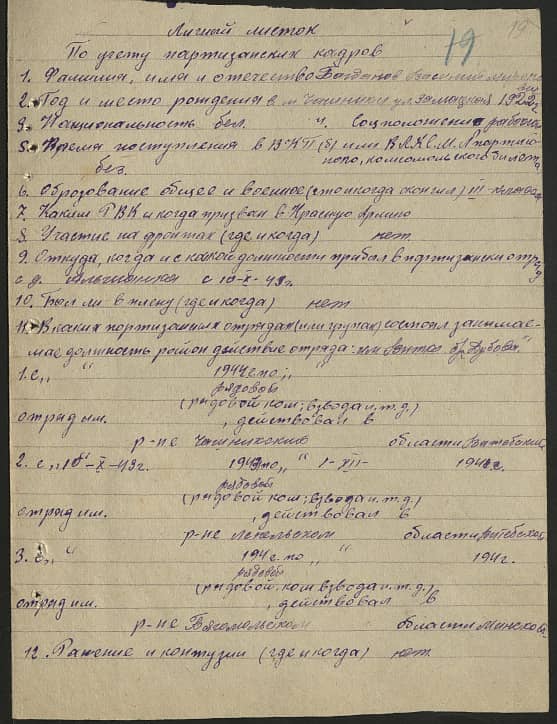 Личный листок
19 19
По учету партизанских кадров
1. Фамилия, имя и отчество Богданов Василий
2. Год и место рождения в м Чашники ул. 1922г
3. Национальность бел. 4. Соцположение рабочий
5. Время поступления в ВКП(б) или ВЛКСМ. № партий-
ного, комсомольского билета
без.
6. Образование общее и военное (что и когда окончил) III-
7. Каким РВК и когда призван в Красную Армию
8. Участие на фронтах (где и когда) нет.
9. Откуда, когда и с какой должности прибыл в партизански отряд
с д. с 10-X-43г.
10. Был ли в плену (где и когда) нет
11. В каких партизанских отрядах (или групах) состоял занимае-
мае должность район действие отряда: бр. Дубова"
1. с „ “ 194 г. по „ “
рядовой
(рядовой ком; взвода и.т.д.)
отряд им. , действовал в
р-не Чашникском области Витебской
2. с „10“-X-43г. 194 по „ 1-XII- 194 г.
рядовой
(рядовой ком; взвода и.т.д.)
отряд им. , действовал в
р-не Лепельском области Витебской
3. с „ “ 194 г. по „ “ 194 г.
рядовой
(рядовой. ком взвода и.т.д.)
отряд им. , действовал в
р-не Бягомльском области Минской
12. Ранение и контузии (где и когда) нет